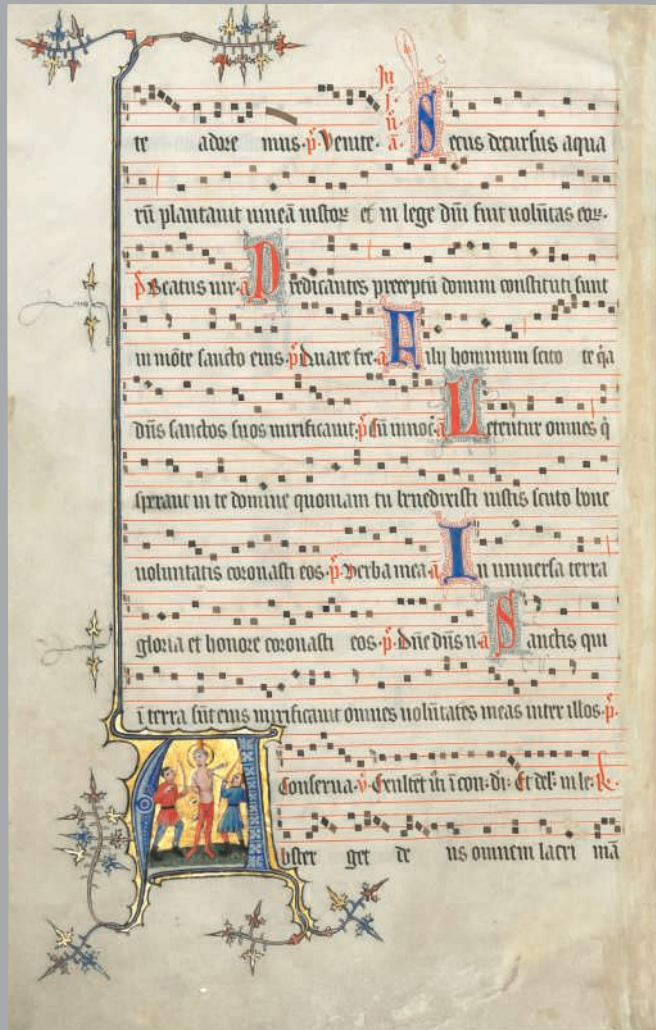 te adore mus. p̃. Venite. Jn j. n. ã. Secus decursus aqua
rū plantauit uineā iustoꝝ et in lege dn̄i fuit uolūtas eoꝝ.
p̃ Beatus uir. a Predicantes preceptū domini constituti sunt
in mōte sancto eius. p̃ Quare fre. a Filij hominum scito te q̄a
dn̄s sanctos suos mirificauit. p̃ Cū inuoc̄. a Letentur omnes q̄
sperant in te domine quoniam tu benedixisti iustis scuto bone
uoluntatis coronasti eos. p̃. Verba mea. ã In uniuersa terra
gloria et honore coronasti eos. p̃. Dn̄e dn̄s n. a Sanctis qui
ī terra sūt eius mirificauit omnes uolūtates meas inter illos. p̃.
Conserua. v̄ Exultēt iti ī con. di. Et del. in le. R̷.
Abster get de us omnem lacri mā